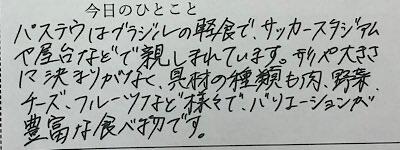 今日のひとこと
パステウはブラジルの軽食で、サッカースタジアム
や屋台などで親しまれています。形や大きさ
に決まりがなく、具材の種類も肉、野菜、
チーズ、フルーツなど様々で、バリエーションが
豊富な食べ物です。